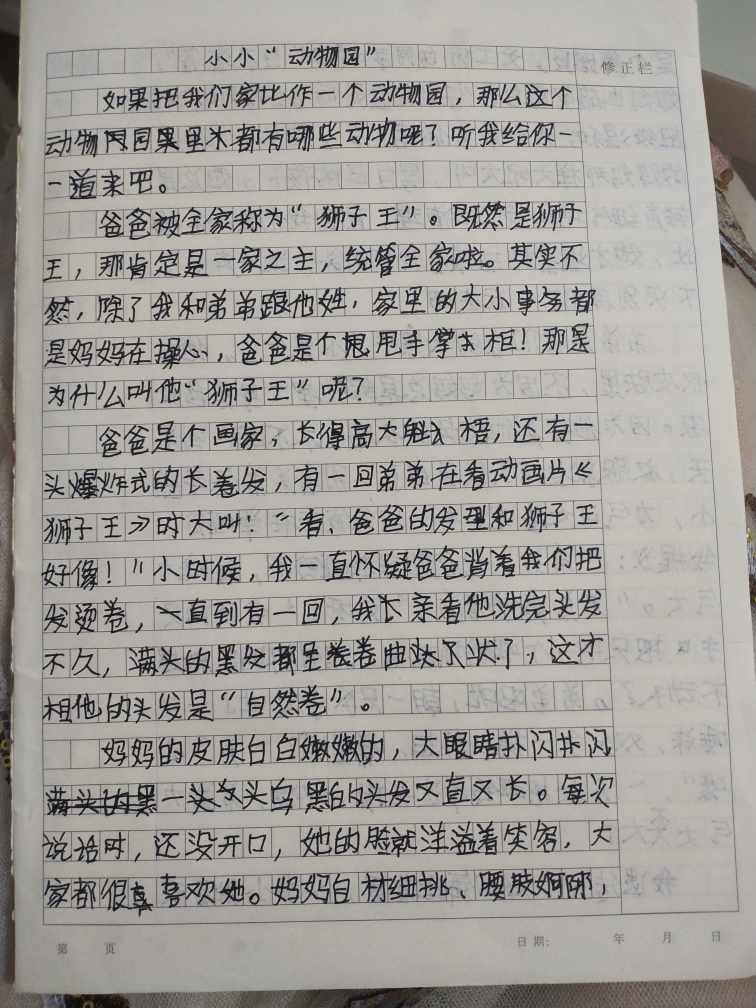 小小“动物园”
修正栏
如果把我们家比作一个动物园，那么这个
动物园里都有哪些动物呢？听我给你一
一道来吧。
爸爸被全家称为“狮子王”。既然是狮子
王，那肯定是一家之主，统管全家啦。其实不
然，除了我和弟弟跟他姓，家里的大小事务都
是妈妈在操心，爸爸是个甩手掌柜！那是
为什么叫他“狮子王”呢？
爸爸是个画家，长得高大魁梧，还有一
头爆炸式的长卷发，有一回弟弟在看动画片《
狮子王》时大叫：“看、爸爸的发型和狮子王
好像！”小时候，我一直怀疑爸爸背着我们把
发烫卷，一直到有一回，我长亲看他洗完头发
不久，满头的黑发都呈卷卷曲状了，这才
相他的头发是“自然卷”。
妈妈的皮肤白白嫩嫩的，大眼睛扑闪扑闪
一头乌黑的头发又直又长。每次
说话时，还没开口，她的脸就洋溢着笑容，大
家都很喜欢她。妈妈白材细挑、腰肢婀娜，
第 页 日期： 年 月 日